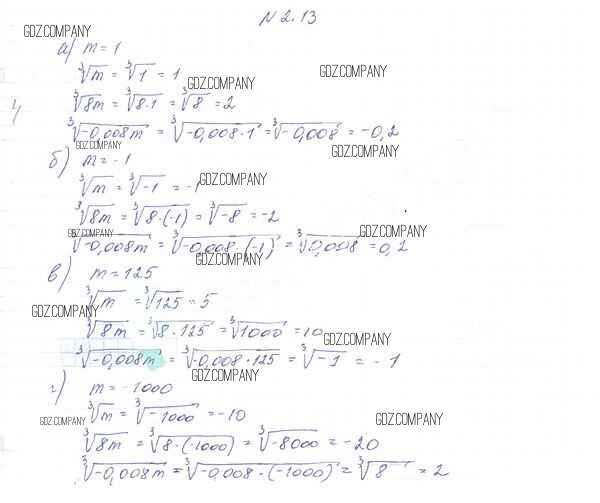 N 2.13
GDZ.COMPANY
а) m = 1
∛m = ∛1 = 1
GDZ.COMPANY
GDZ.COMPANY
∛8m = ∛8·1 = ∛8 = 2
∛-0,008m = ∛-0,008·1 = ∛-0,008 = -0,2
GDZ.COMPANY
GDZ.COMPANY
б) m = -1
∛m = ∛-1 = -1
GDZ.COMPANY
∛8m = ∛8·(-1) = ∛-8 = -2
GDZ.COMPANY
GDZ.COMPANY
∛-0,008m = ∛-0,008·(-1) = ∛0,008 = 0,2
GDZ.COMPANY
в) m = 125
∛m = ∛125 = 5
GDZ.COMPANY
∛8m = ∛8·125 = ∛1000 = 10
GDZ.COMPANY
∛-0,008m = ∛-0,008·125 = ∛-1 = -1
GDZ.COMPANY
г) m = -1000
∛m = ∛-1000 = -10
GDZ.COMPANY
GDZ.COMPANY
∛8m = ∛8·(-1000) = ∛-8000 = -20
∛-0,008m = ∛-0,008·(-1000) = ∛8 = 2